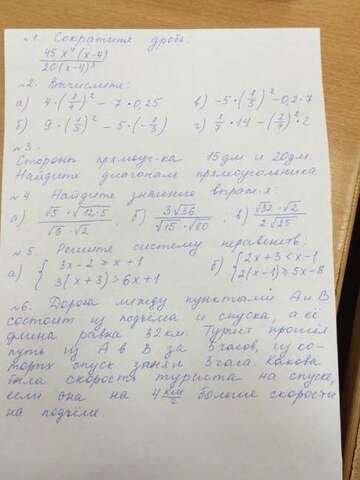 №1. Сократите дробь.
45x⁴(x-4)
20(x-4)³
№2. Вычислите:
а) 4·(1/4)² - 7·0,25 в) -5·(1/5)² - 0,2·7
б) 9·(1/3)² - 5·(-1/3) г) 1/7·14 - (1/7)²·2
№3.
Стороны прямоуг-ка 15дм и 20дм.
Найдите диагональ прямоугольника.
№4. Найдите значения выраж-я:
а) √5·√12·5 / √3·√2, б) 3√36 / √15·√80, в) √32·√2 / 2√25
№5. Решите систему неравенств:
а) { 3x-2 ≥ x+1 б) { 2x+3 < x-1
3(x+3) > 6x+1 2(x-1) ≥ 5x-8
№6. Дорога между пунктами А и В
состоит из подъёма и спуска, а её
длина равна 32км. Турист прошёл
путь из А в В за 5 часов, из ко-
торых спуск занял 3 часа. Какова
была скорость туриста на спуске,
если она на 4 км/ч больше скорости
на подъёме.